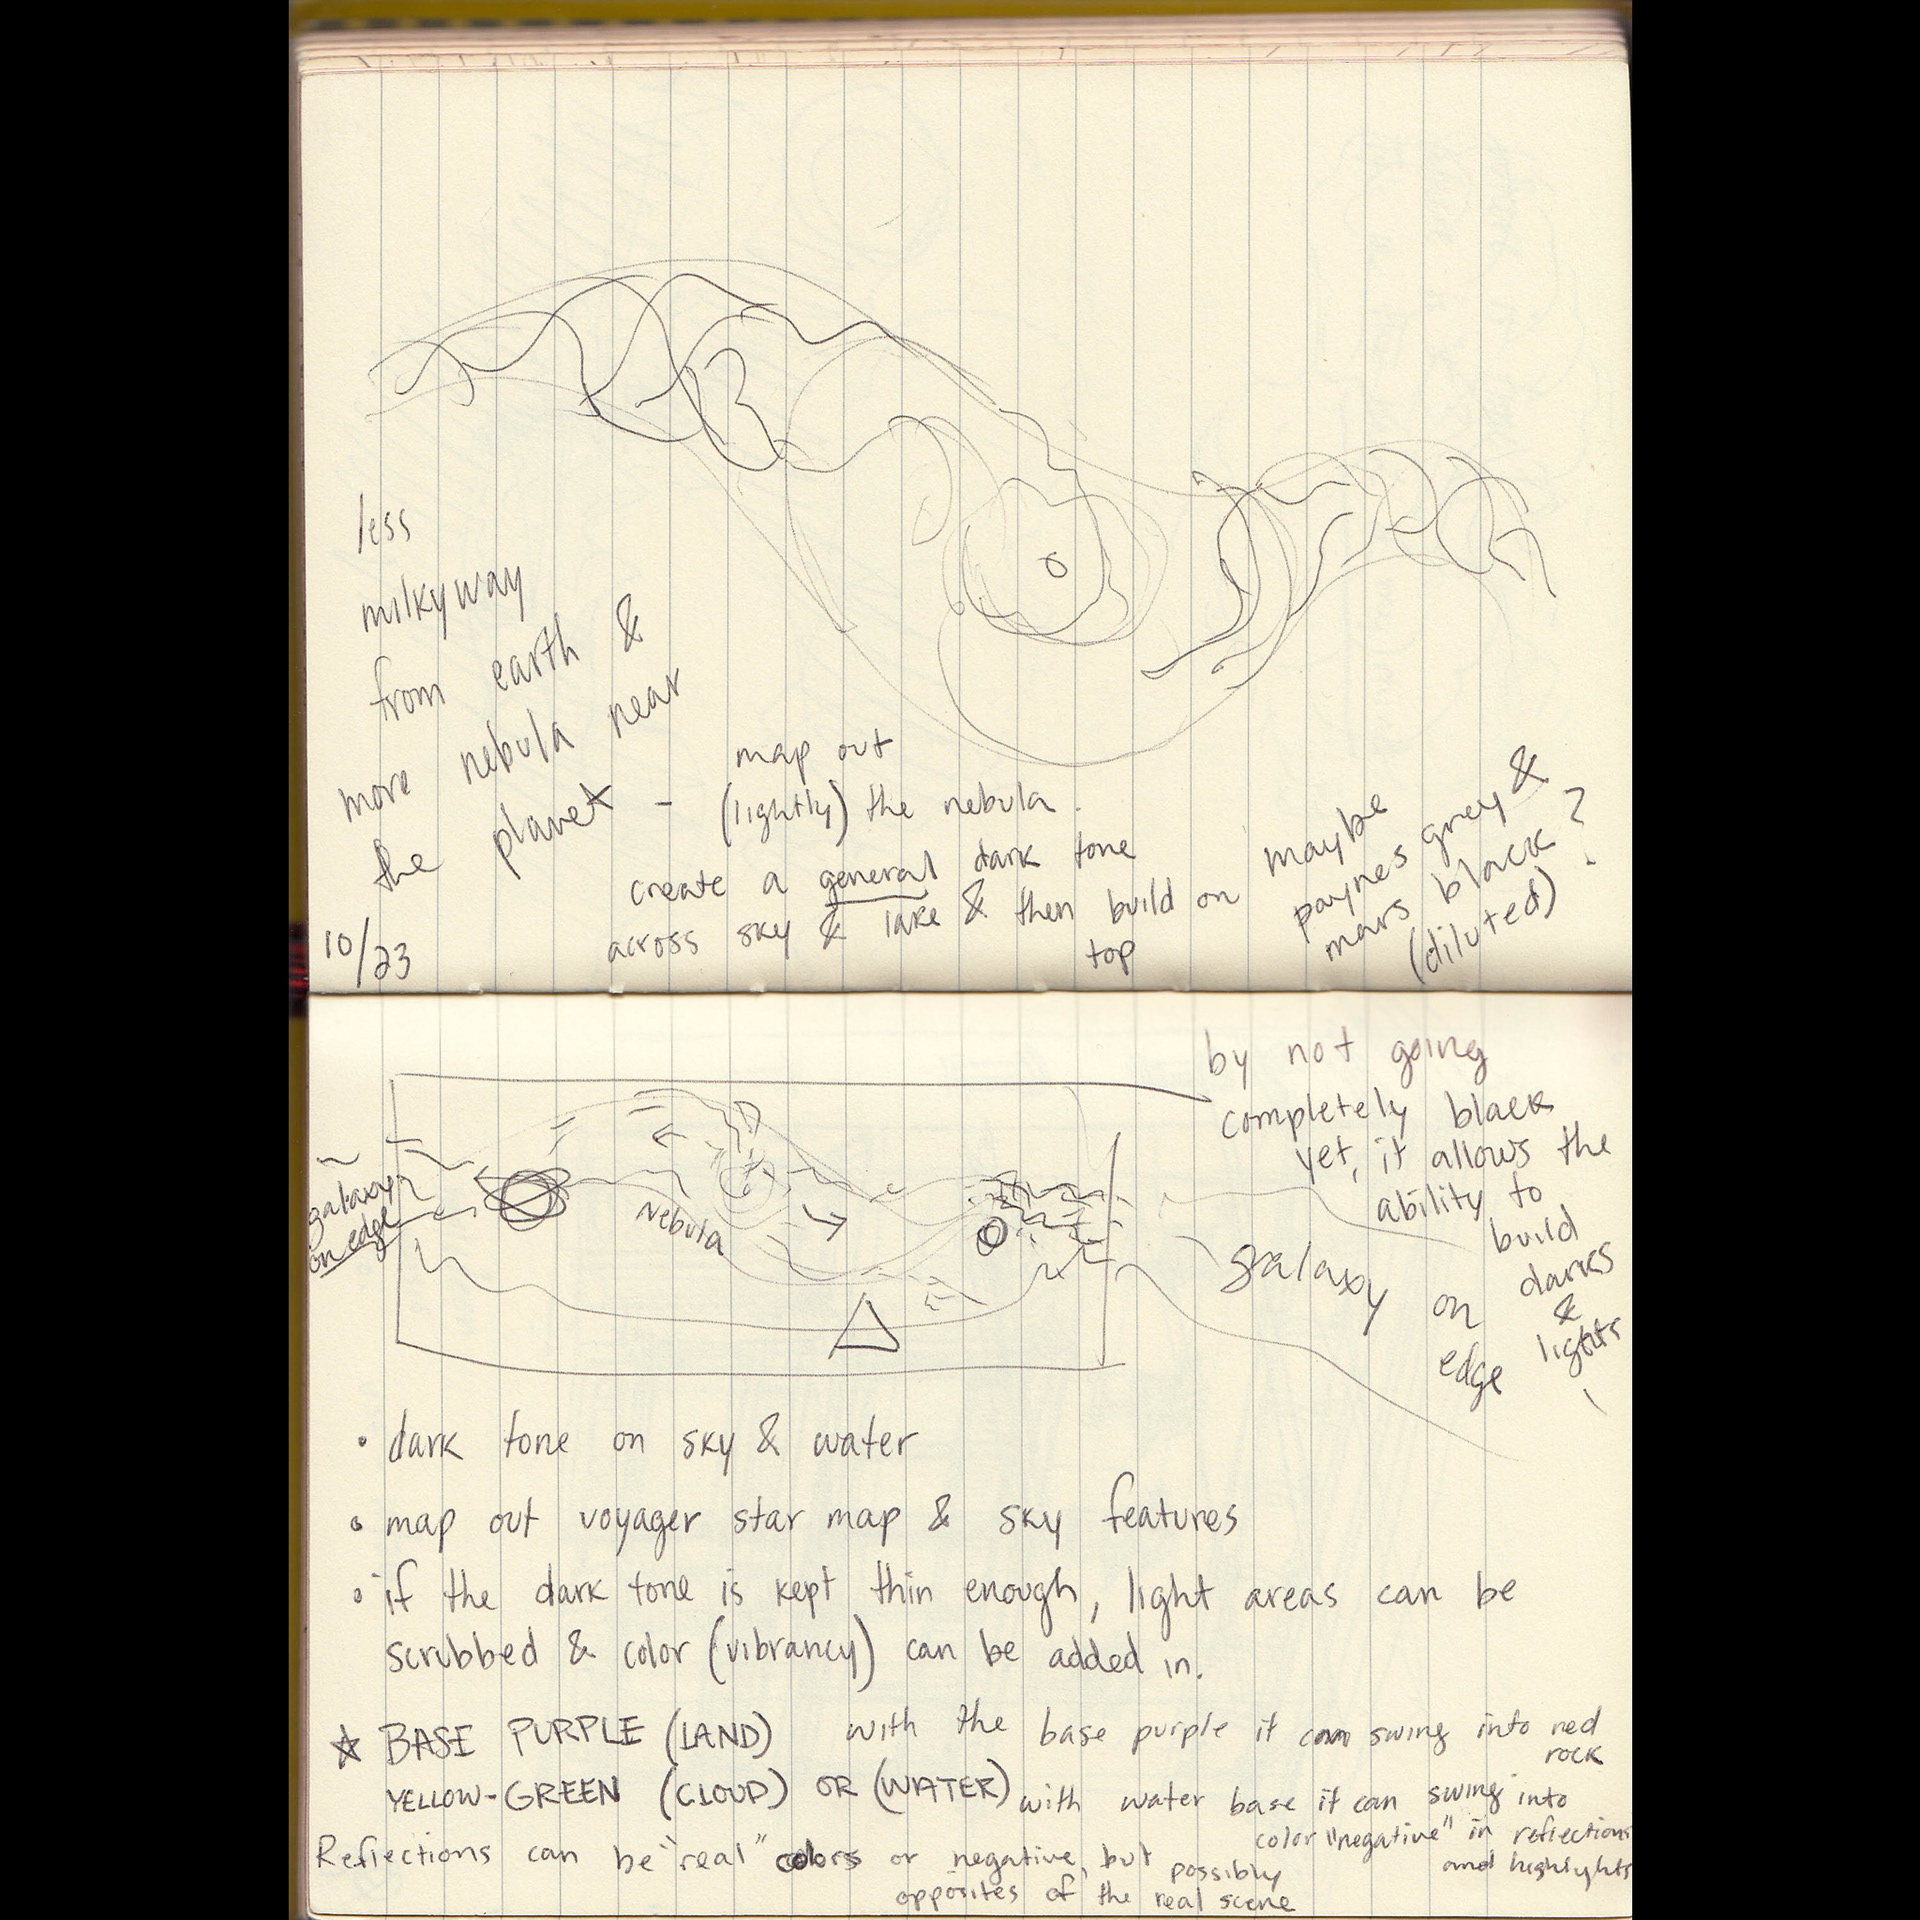 less
milkyway
from earth &
more nebula near
the planet -
map out
(lightly) the nebula.
create a general dark tone
across sky & lake & then build on
top
maybe
paynes grey &
mars black ?
(diluted)
10/23
by not going
completely black
yet, it allows the
ability to
build
darks
&
lights
galaxy
on edge
Nebula
galaxy
on
edge
• dark tone on sky & water
• map out voyager star map & sky features
• if the dark tone is kept thin enough, light areas can be
scrubbed & color (vibrancy) can be added in.
☆ BASE PURPLE (LAND) with the base purple it can swing into red
rock
YELLOW-GREEN (CLOUD) OR (WATER) with water base it can swing into
color "negative" in reflections
and highlights
Reflections can be "real" colors or negative, but possibly
opposites of the real scene